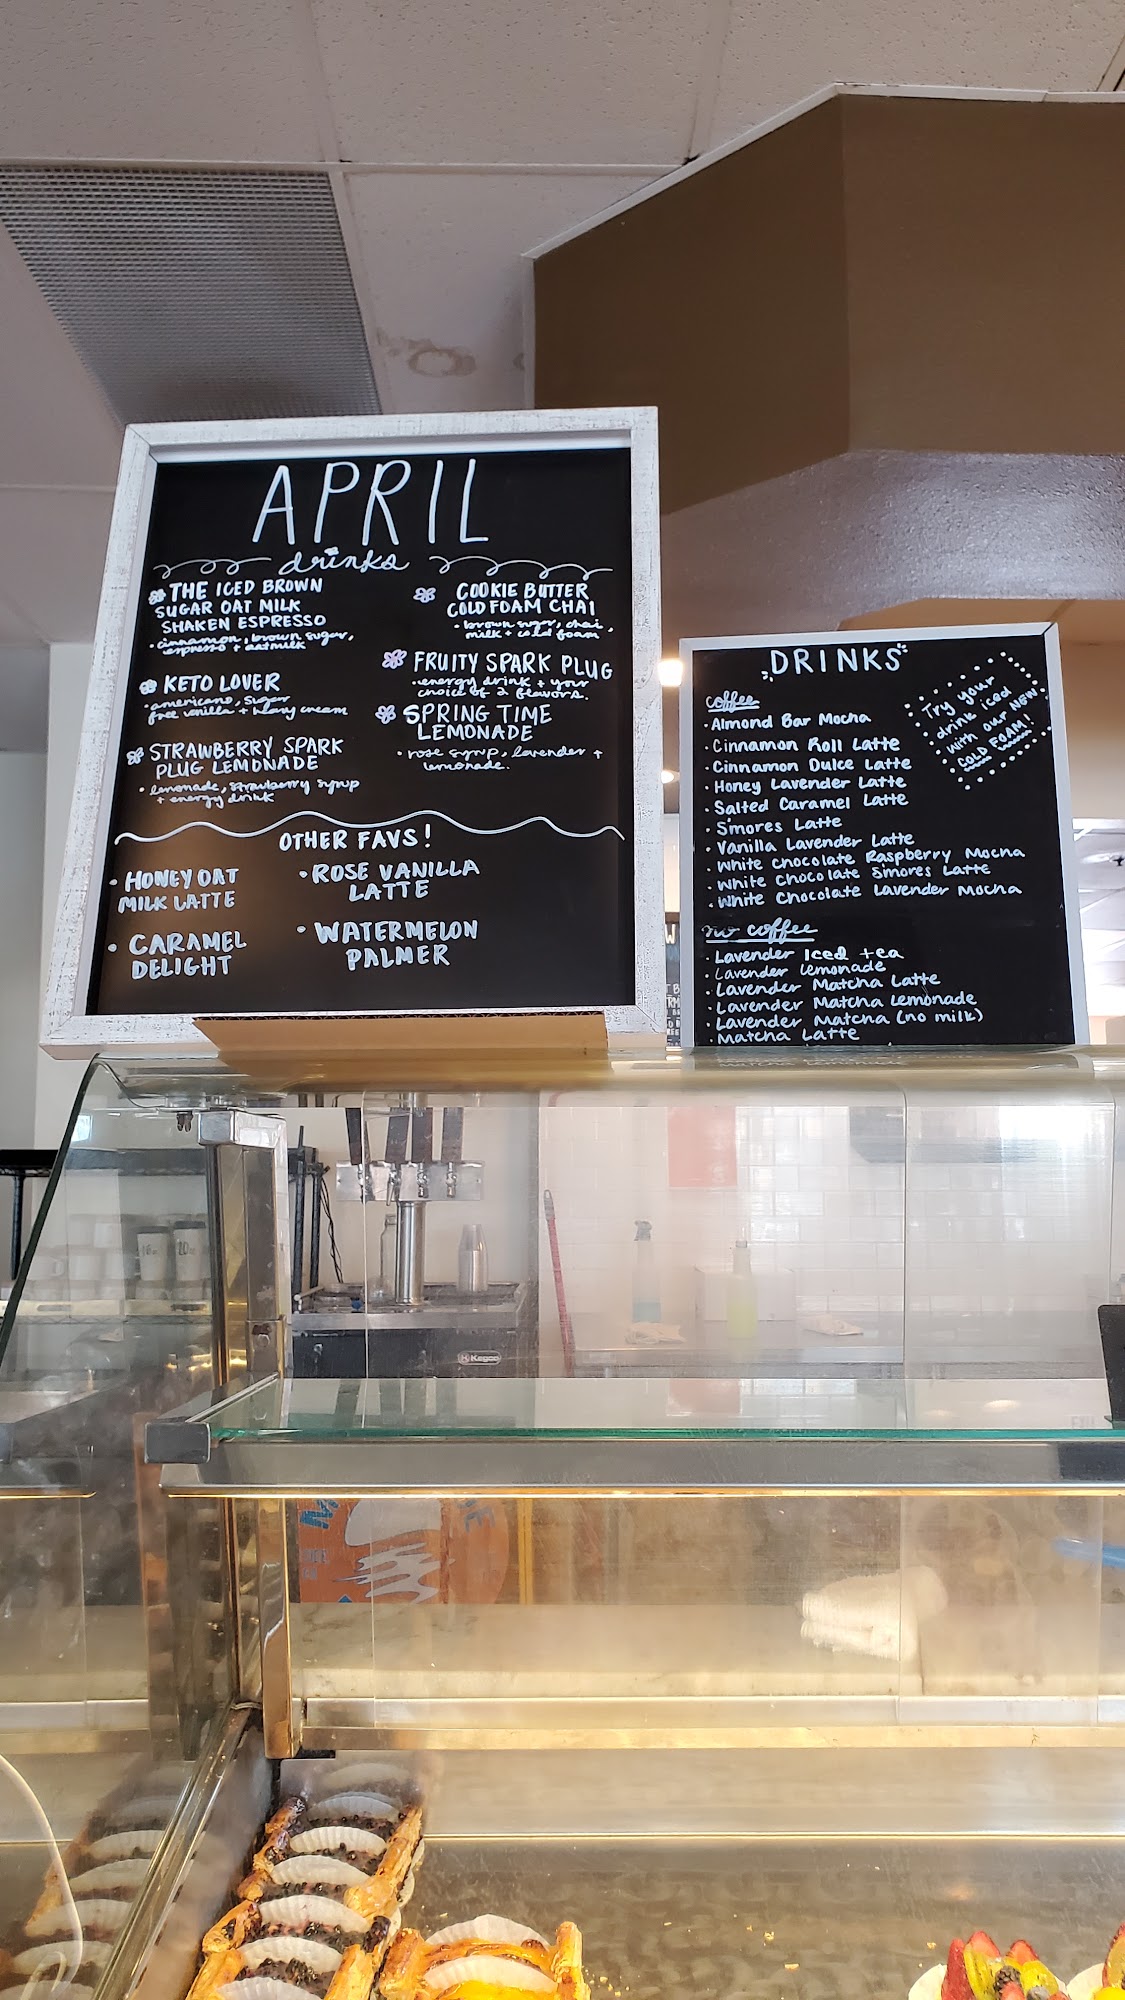 APRIL
drinks
THE ICED BROWN
SUGAR OAT MILK
SHAKEN ESPRESSO
• cinnamon, brown sugar,
espresso + oatmilk
KETO LOVER
• americano, sugar
free vanilla + heavy cream
STRAWBERRY SPARK
PLUG LEMONADE
• lemonade, strawberry syrup
+ energy drink
COOKIE BUTTER
COLD FOAM CHAI
• brown sugar, chai,
milk + cold foam
FRUITY SPARK PLUG
• energy drink + your
choice of 2 flavors.
SPRING TIME
LEMONADE
• rose syrup, lavender +
lemonade.
OTHER FAVS!
• HONEY OAT
MILK LATTE
• CARAMEL
DELIGHT
• ROSE VANILLA
LATTE
• WATERMELON
PALMER
DRINKS
coffee
• Almond Bar Mocha
• Cinnamon Roll Latte
• Cinnamon Dulce Latte
• Honey Lavender Latte
• Salted Caramel Latte
• S'mores Latte
• Vanilla Lavender Latte
• White Chocolate Raspberry Mocha
• White Chocolate S'mores Latte
• White Chocolate Lavender Mocha
Try your
drink iced
with our NEW
COLD FOAM!
no coffee
• Lavender Iced tea
• Lavender Lemonade
• Lavender Matcha Latte
• Lavender Matcha Lemonade
• Lavender Matcha (no milk)
• Matcha Latte
16oz
20oz
Kegco